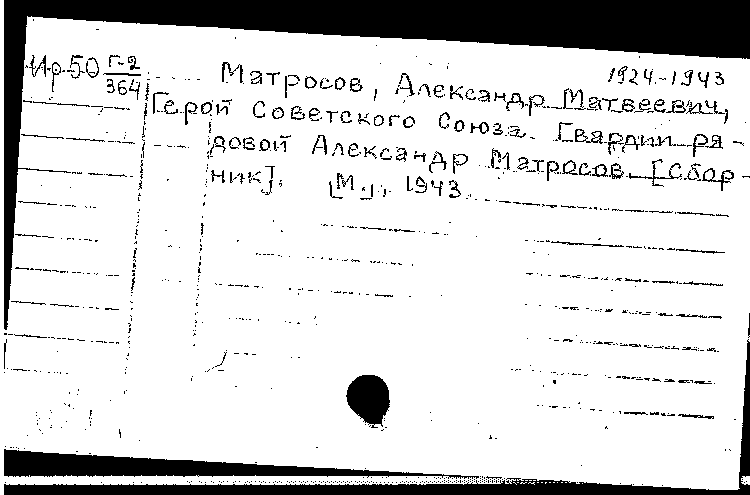 Ир50 Г-2/364
Матросов, Александр Матвеевич, 1924-1943
Герой Советского Союза. Гвардии ря-
довой Александр Матросов. [Сбор-
ник]. [М.], 1943.